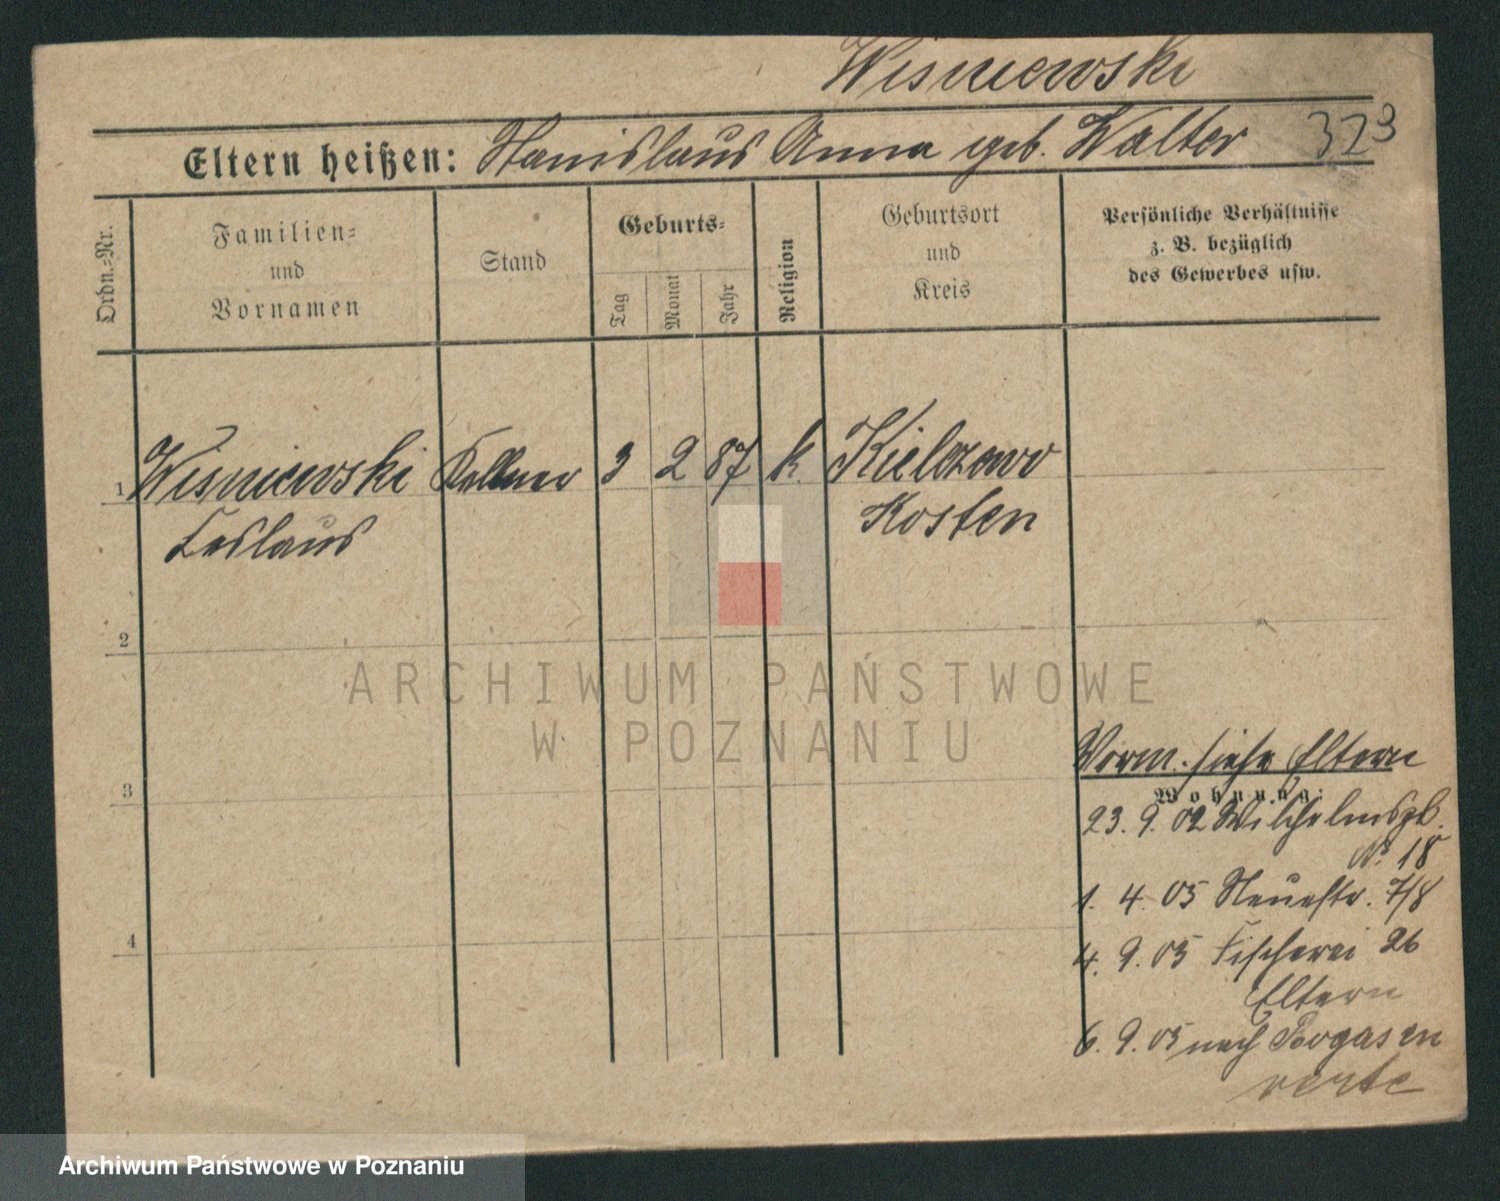 Wisniewski
Eltern heißen: Stanislaus Anna geb. Walter 323
Ordn.=Nr.
Familien=
und
Vornamen
Stand
Geburts=
Tag
Monat
Jahr
Religion
Geburtsort
und
Kreis
Persönliche Verhältnisse
z. B. bezüglich
des Gewerbes usw.
1 Wisniewski Kellner 3 2 87 k. Kielczewo
Ceslaus Kosten
2
ARCHIWUM PAŃSTWOWE
W POZNANIU
3
Vorm. siehe Eltern
Wohnung:
23. 9. 02 Wilhelmspl.
No 18
1. 4. 05 Neuestr. 7/8
4
4. 9. 05 Fischerei 26
Eltern
6. 9. 05 nach Rogasen
Archiwum Państwowe w Poznaniu